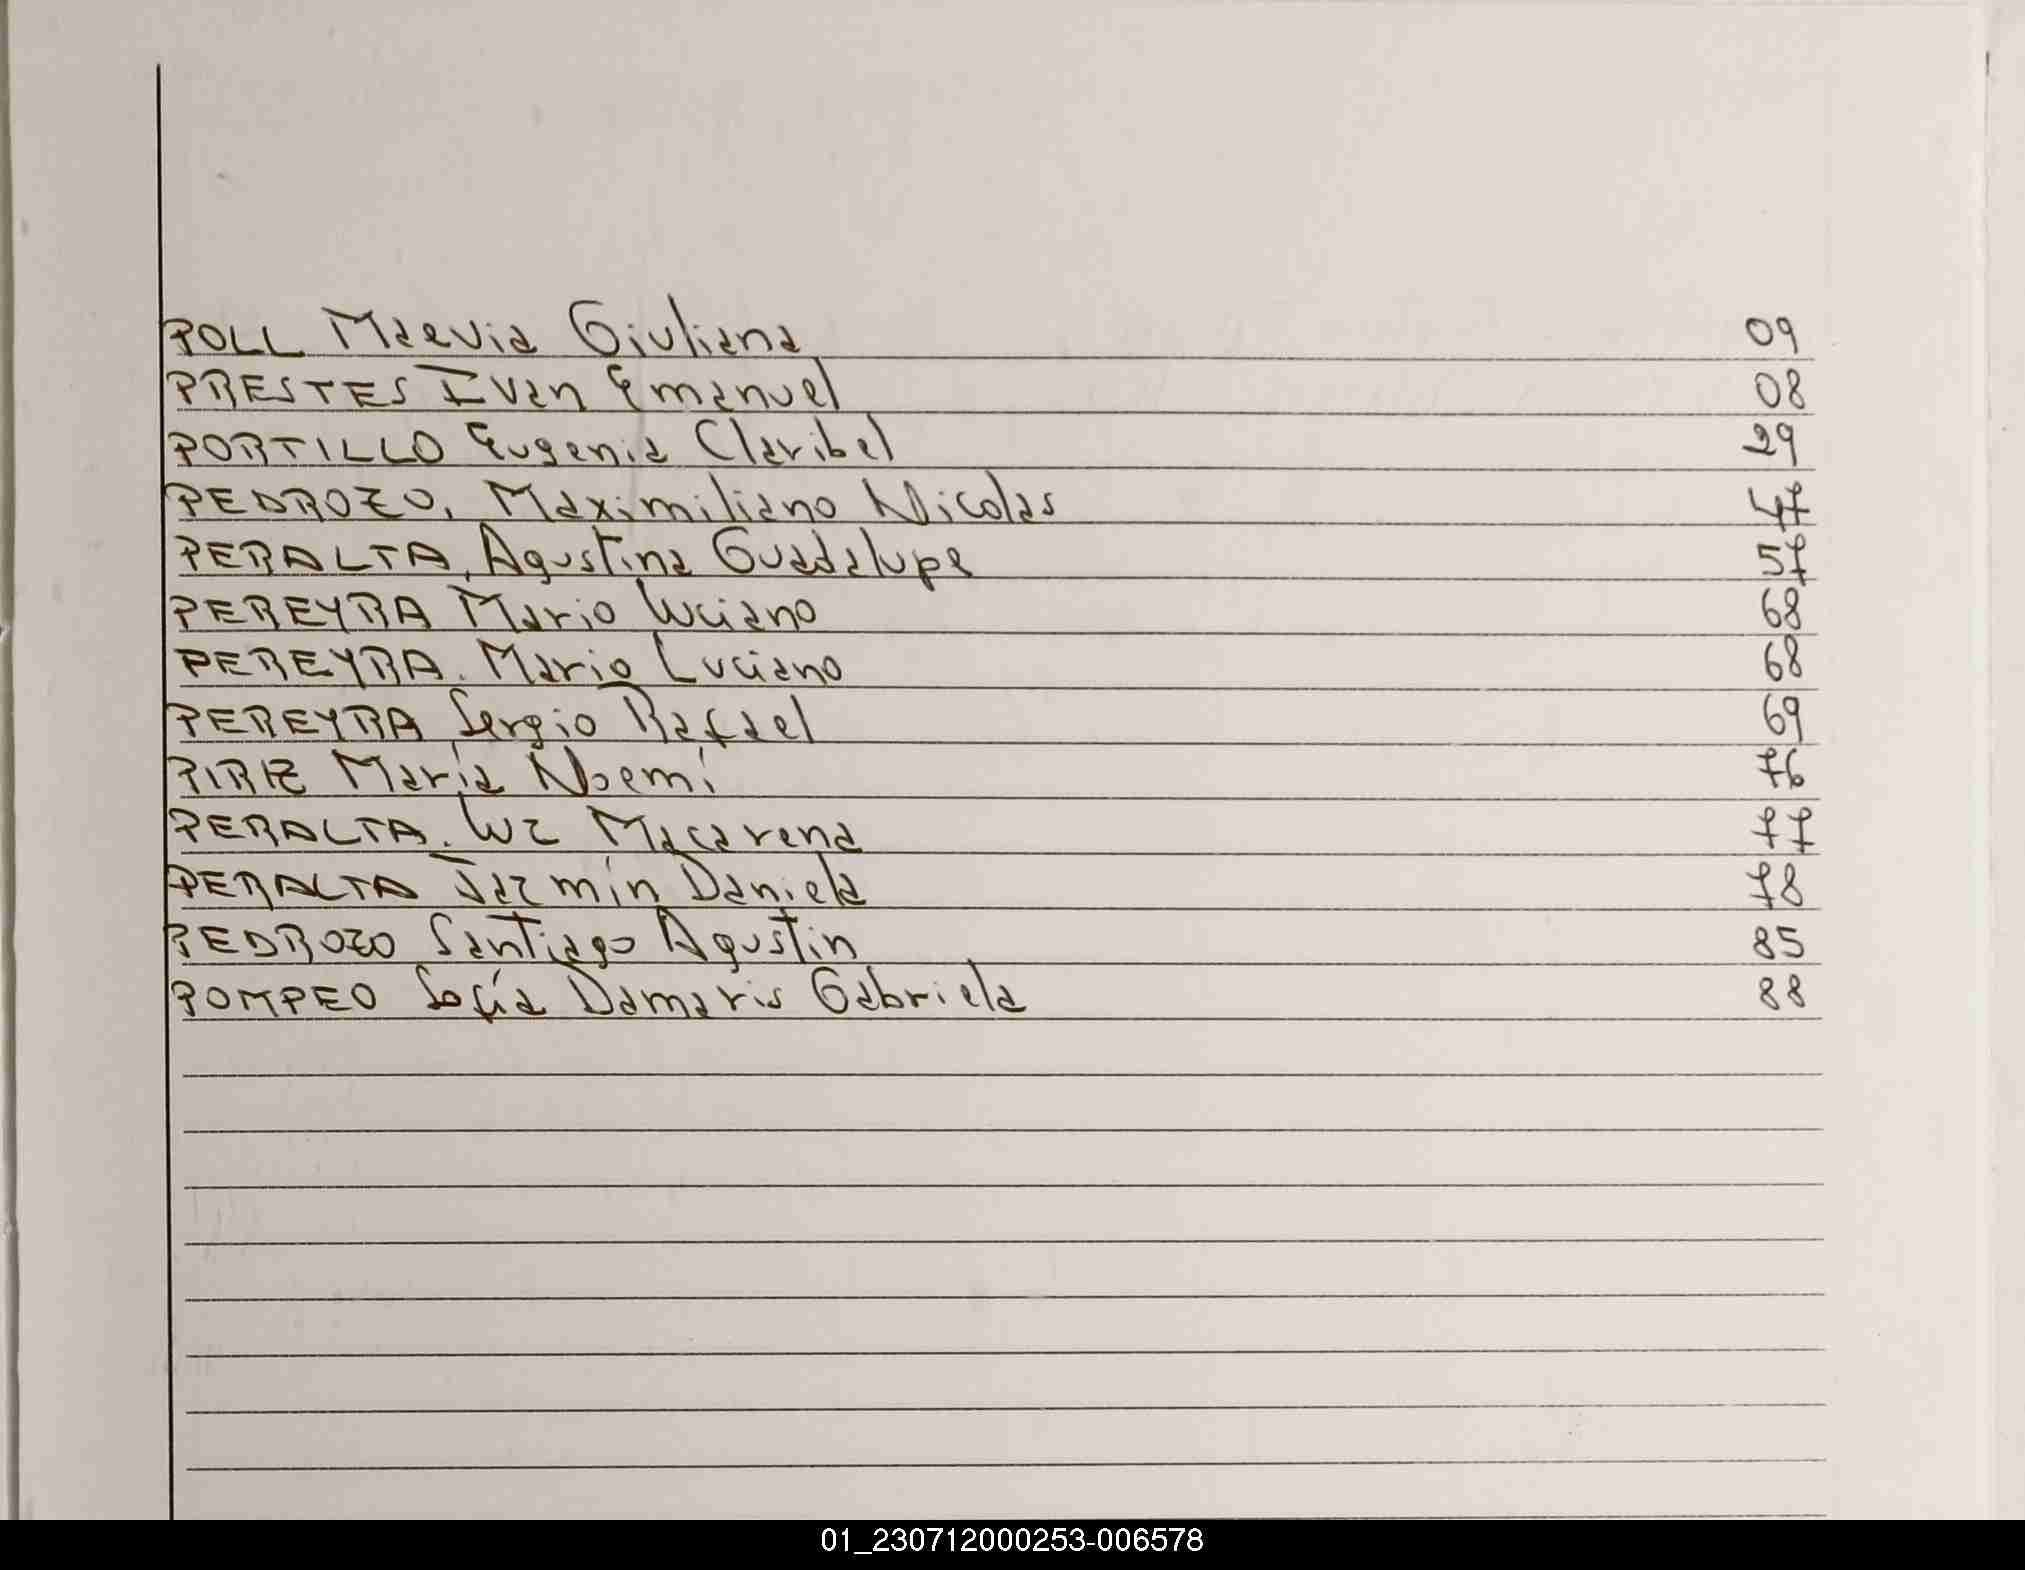 POLL Maevia Giuliana 09
PRESTES Ivan Emanuel 08
PORTILLO Eugenia Claribel 29
PEDROZO, Maximiliano Nicolas 47
PERALTA, Agustina Guadalupe 57
PEREYRA Mario Luciano 68
PEREYRA. Mario Luciano 68
PEREYRA Sergio Rafael 69
PIRIZ María Noemí 76
PERALTA. Luz Macarena 77
PERALTA Jazmín Daniela 78
PEDROZO Santiago Agustin 85
POMPEO Sofía Damaris Gabriela 88
01_230712000253-006578